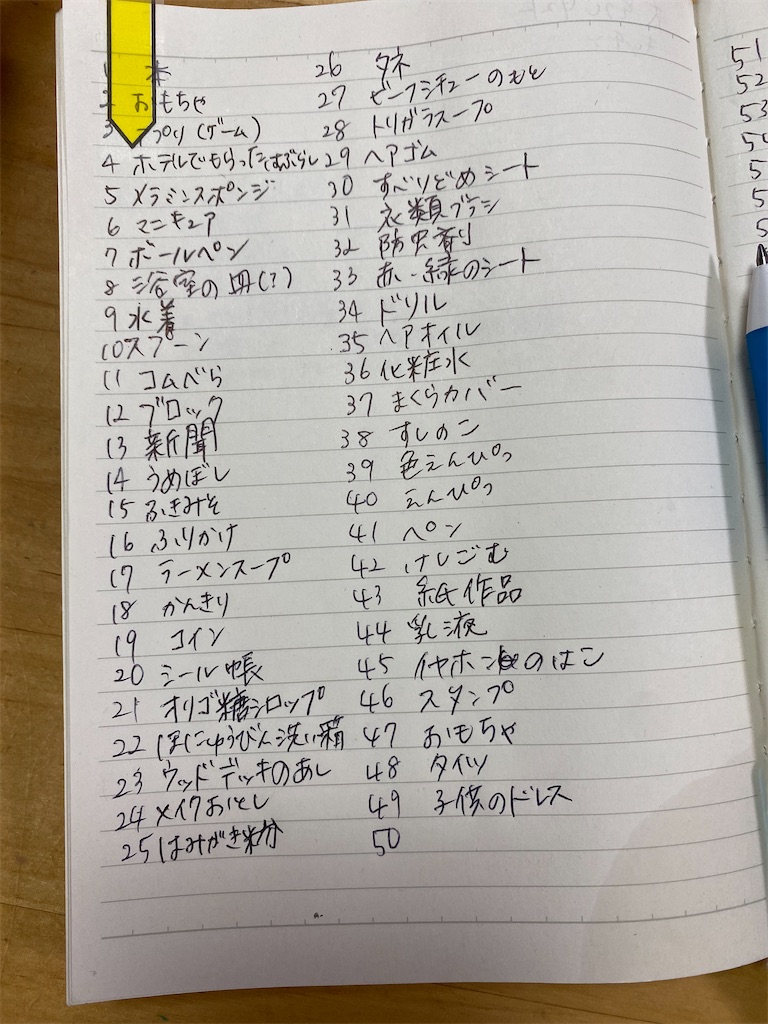 1 本
2 おもちゃ
3 アプリ(ゲーム)
4 ホテルでもらったはぶらし
5 メラミンスポンジ
6 マニキュア
7 ボールペン
8 浴室の皿(?)
9 水着
10 スプーン
11 ゴムべら
12 ブロック
13 新聞
14 うめぼし
15 ふきみそ
16 ふりかけ
17 ラーメンスープ
18 かんきり
19 コイン
20 シール帳
21 オリゴ糖シロップ
22 ほにゅうびん洗い箱
23 ウッドデッキのあし
24 メイクおとし
25 はみがき粉
26 タネ
27 ビーフシチューのもと
28 トリガラスープ
29 ヘアゴム
30 すべりどめシート
31 衣類ブラシ
32 防虫剤
33 赤・緑のシート
34 ドリル
35 ヘアオイル
36 化粧水
37 まくらカバー
38 すしのこ
39 色えんぴつ
40 えんぴつ
41 ペン
42 けしごむ
43 紙作品
44 乳液
45 イヤホンのはこ
46 スタンプ
47 おもちゃ
48 タイツ
49 子供のドレス
50
51
52
53